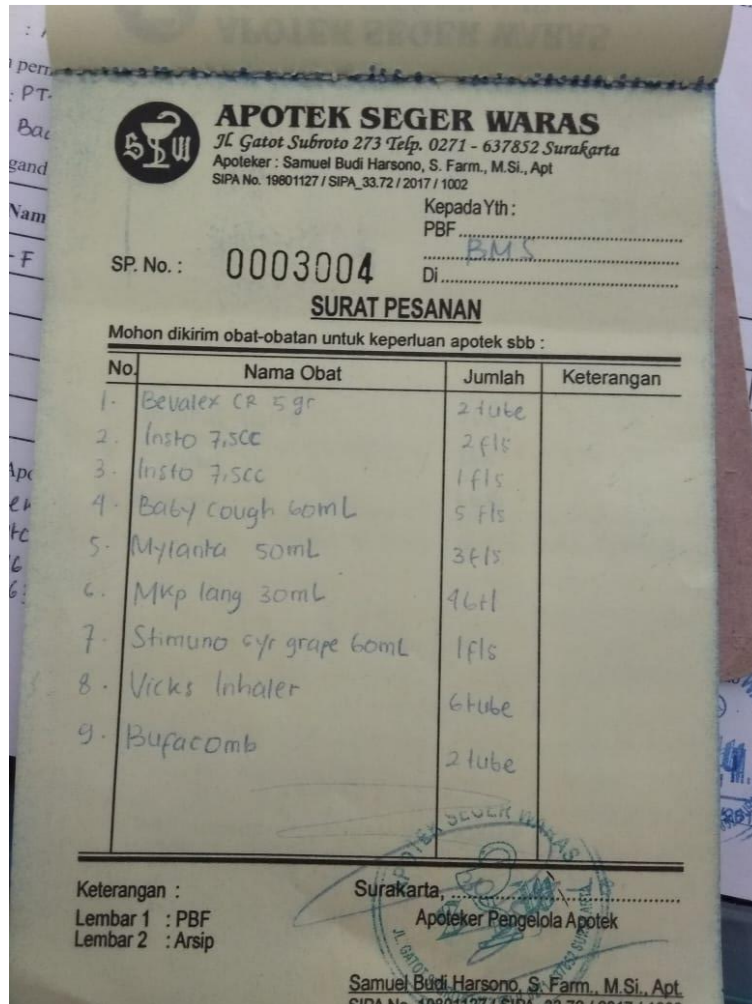 : 
perm
: PT.
Ba
gand
Nam
- F
Apo
APOTEK SEGER WARAS
S W
Jl. Gatot Subroto 273 Telp. 0271 - 637852 Surakarta
Apoteker : Samuel Budi Harsono, S. Farm., M.Si., Apt
SIPA No. 19801127 / SIPA_33.72 / 2017 / 1002
Kepada Yth :
PBF
BMS
SP. No. : 0003004
Di
SURAT PESANAN
Mohon dikirim obat-obatan untuk keperluan apotek sbb :
No. Nama Obat Jumlah Keterangan
1. Bevalex CR 5 gr 2 tube
2. Insto 7,5cc 2 fls
3. Insto 7,5cc 1 fls
4. Baby cough 60mL 5 fls
5. Mylanta 50mL 3 fls
6. Mkp lang 30mL
7. Stimuno syr grape 60mL 1 fls
8. Vicks Inhaler 6 tube
9. Bufacomb 2 tube
Keterangan :
Lembar 1 : PBF
Lembar 2 : Arsip
Surakarta,
Apoteker Pengelola Apotek
APOTEK SEGER WARAS
JL. GATOT
Samuel Budi Harsono, S. Farm., M.Si., Apt